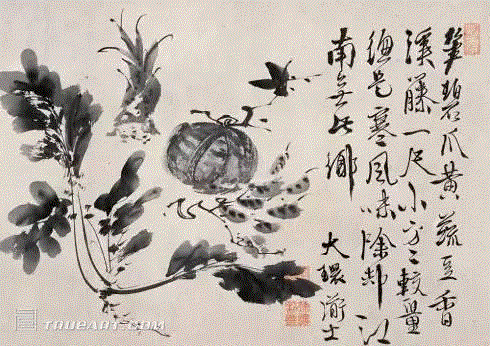 碧瓜黄蔬豆香
溪藤一尺小方〻較量
總是寒風味除却江
南無此鄉
大環 士
TRUEART.COM